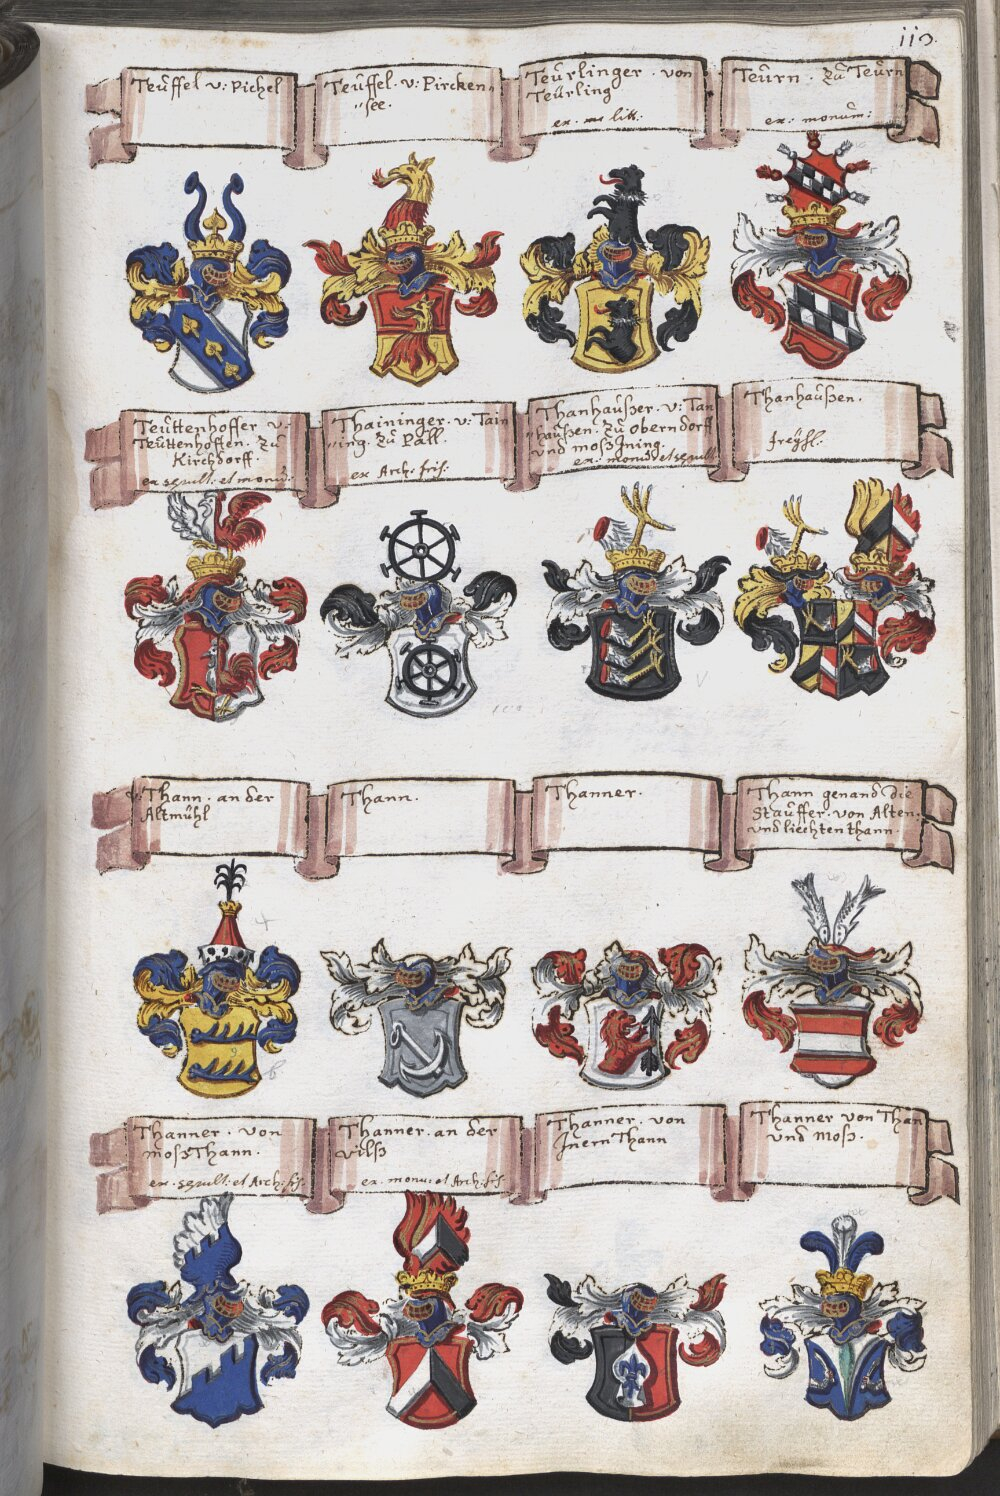 113.
Teuffel v: Pichel
Teuffel. v: Pircken=
=see.
Teurlinger. von
Teurling
ex. mo litt:
Teurn. zu Teurn
ex: monum:
Teuttenhoffer v:
Teuttenhoffen. zu
Kirchdorff.
ex sepult: et monu:
Thaininger. v: Tain
ing. zu Pall.
ex Arch: fris:
Thanhaußer. v: Tan
haußen. zu Oberndorff
und Moß Ining.
ex. monu: et sepult:
Thanhaußen.
freyhl.
Thann. an der
Altmühl
Thann.
Thanner.
Thann genand die
Stauffer. von Alten.
und liechten thann.
Thanner. von
moß Thann.
ex. sepult: et Arch: fris:
Thanner. an der
Vilß
ex. monu: et Arch: fris:
Thanner. von
Inern Thann
Thanner von Than
und Moß.